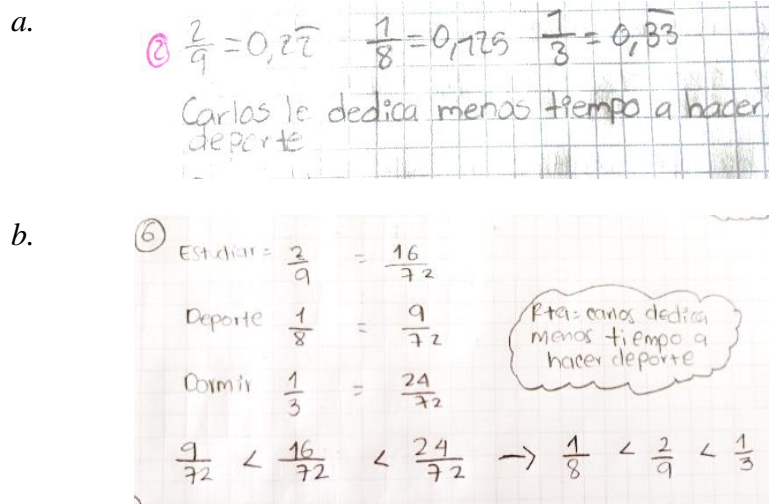 a.
② 2/9 = 0,2̅2̅ 1/8 = 0,125 1/3 = 0,3̅3̅
Carlos le dedica menos tiempo a hacer
deporte
b.
⑥
Estudiar = 2/9 = 16/72
Deporte 1/8 = 9/72
Dormir 1/3 = 24/72
Rta= carlos dedica
menos tiempo a
hacer deporte
9/72 < 16/72 < 24/72 → 1/8 < 2/9 < 1/3